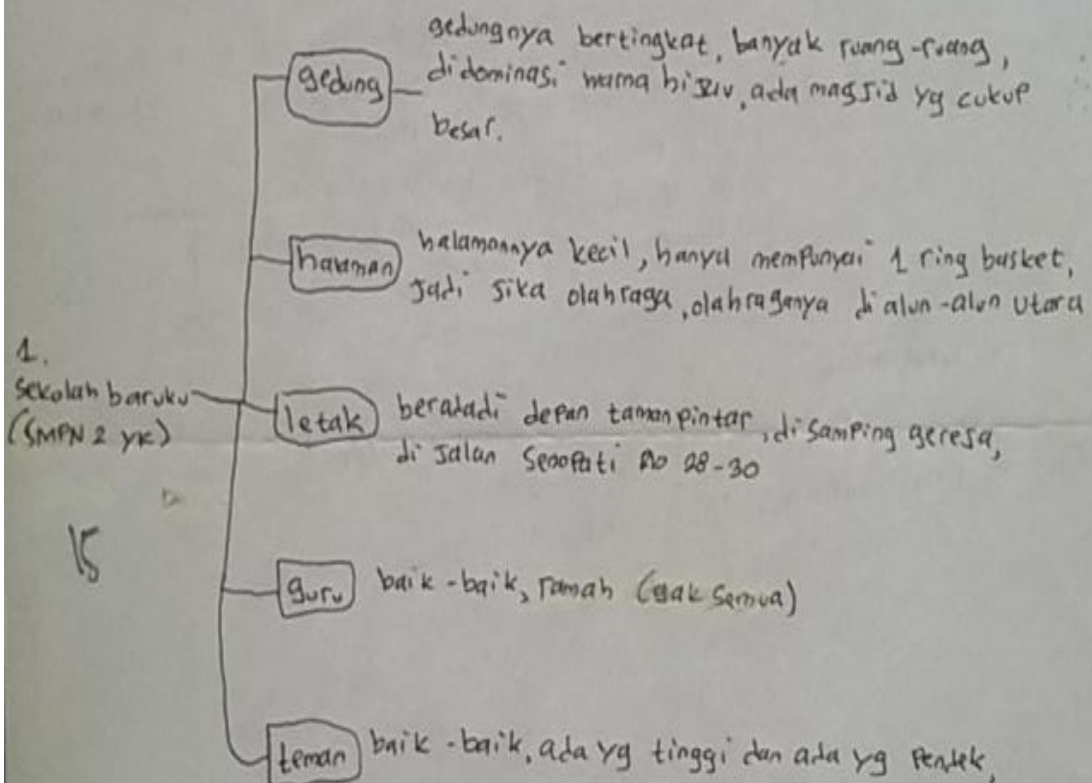 gedungnya bertingkat, banyak ruang-ruang,
gedung
didominasi warna hijau, ada massjid yg cukup
besar.
halaman
halamannya kecil, hanya mempunyai 1 ring basket,
jadi jika olahraga, olahraganya di alun-alun utara
1.
sekolah baruku
(SMPN 2 yk)
letak
berada di depan taman pintar, di samping gereja,
di jalan Senopati no 28-30
15
guru
baik-baik, ramah (gak semua)
teman
baik-baik, ada yg tinggi dan ada yg pendek